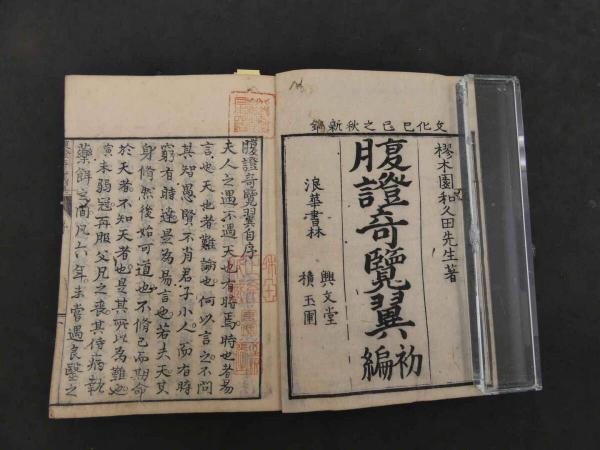 文化己巳之秋新鐫
樛木園和久田先生著
腹證奇覽翼
初編
興文堂
浪華書林
積玉圃
腹證奇覽翼自序
夫人之遇不遇天也有時焉時也者易
言也天也者難諭也何以言之不問
其智愚賢不肖君子小人而有時
窮有時達是為易言也若夫天
身脩然後始可道也不脩己而期命
於天者不知天者也是其所以為難也
寅未弱冠再服父兄之喪其侍病執
藥餌之間凡六年未嘗遇良醫之